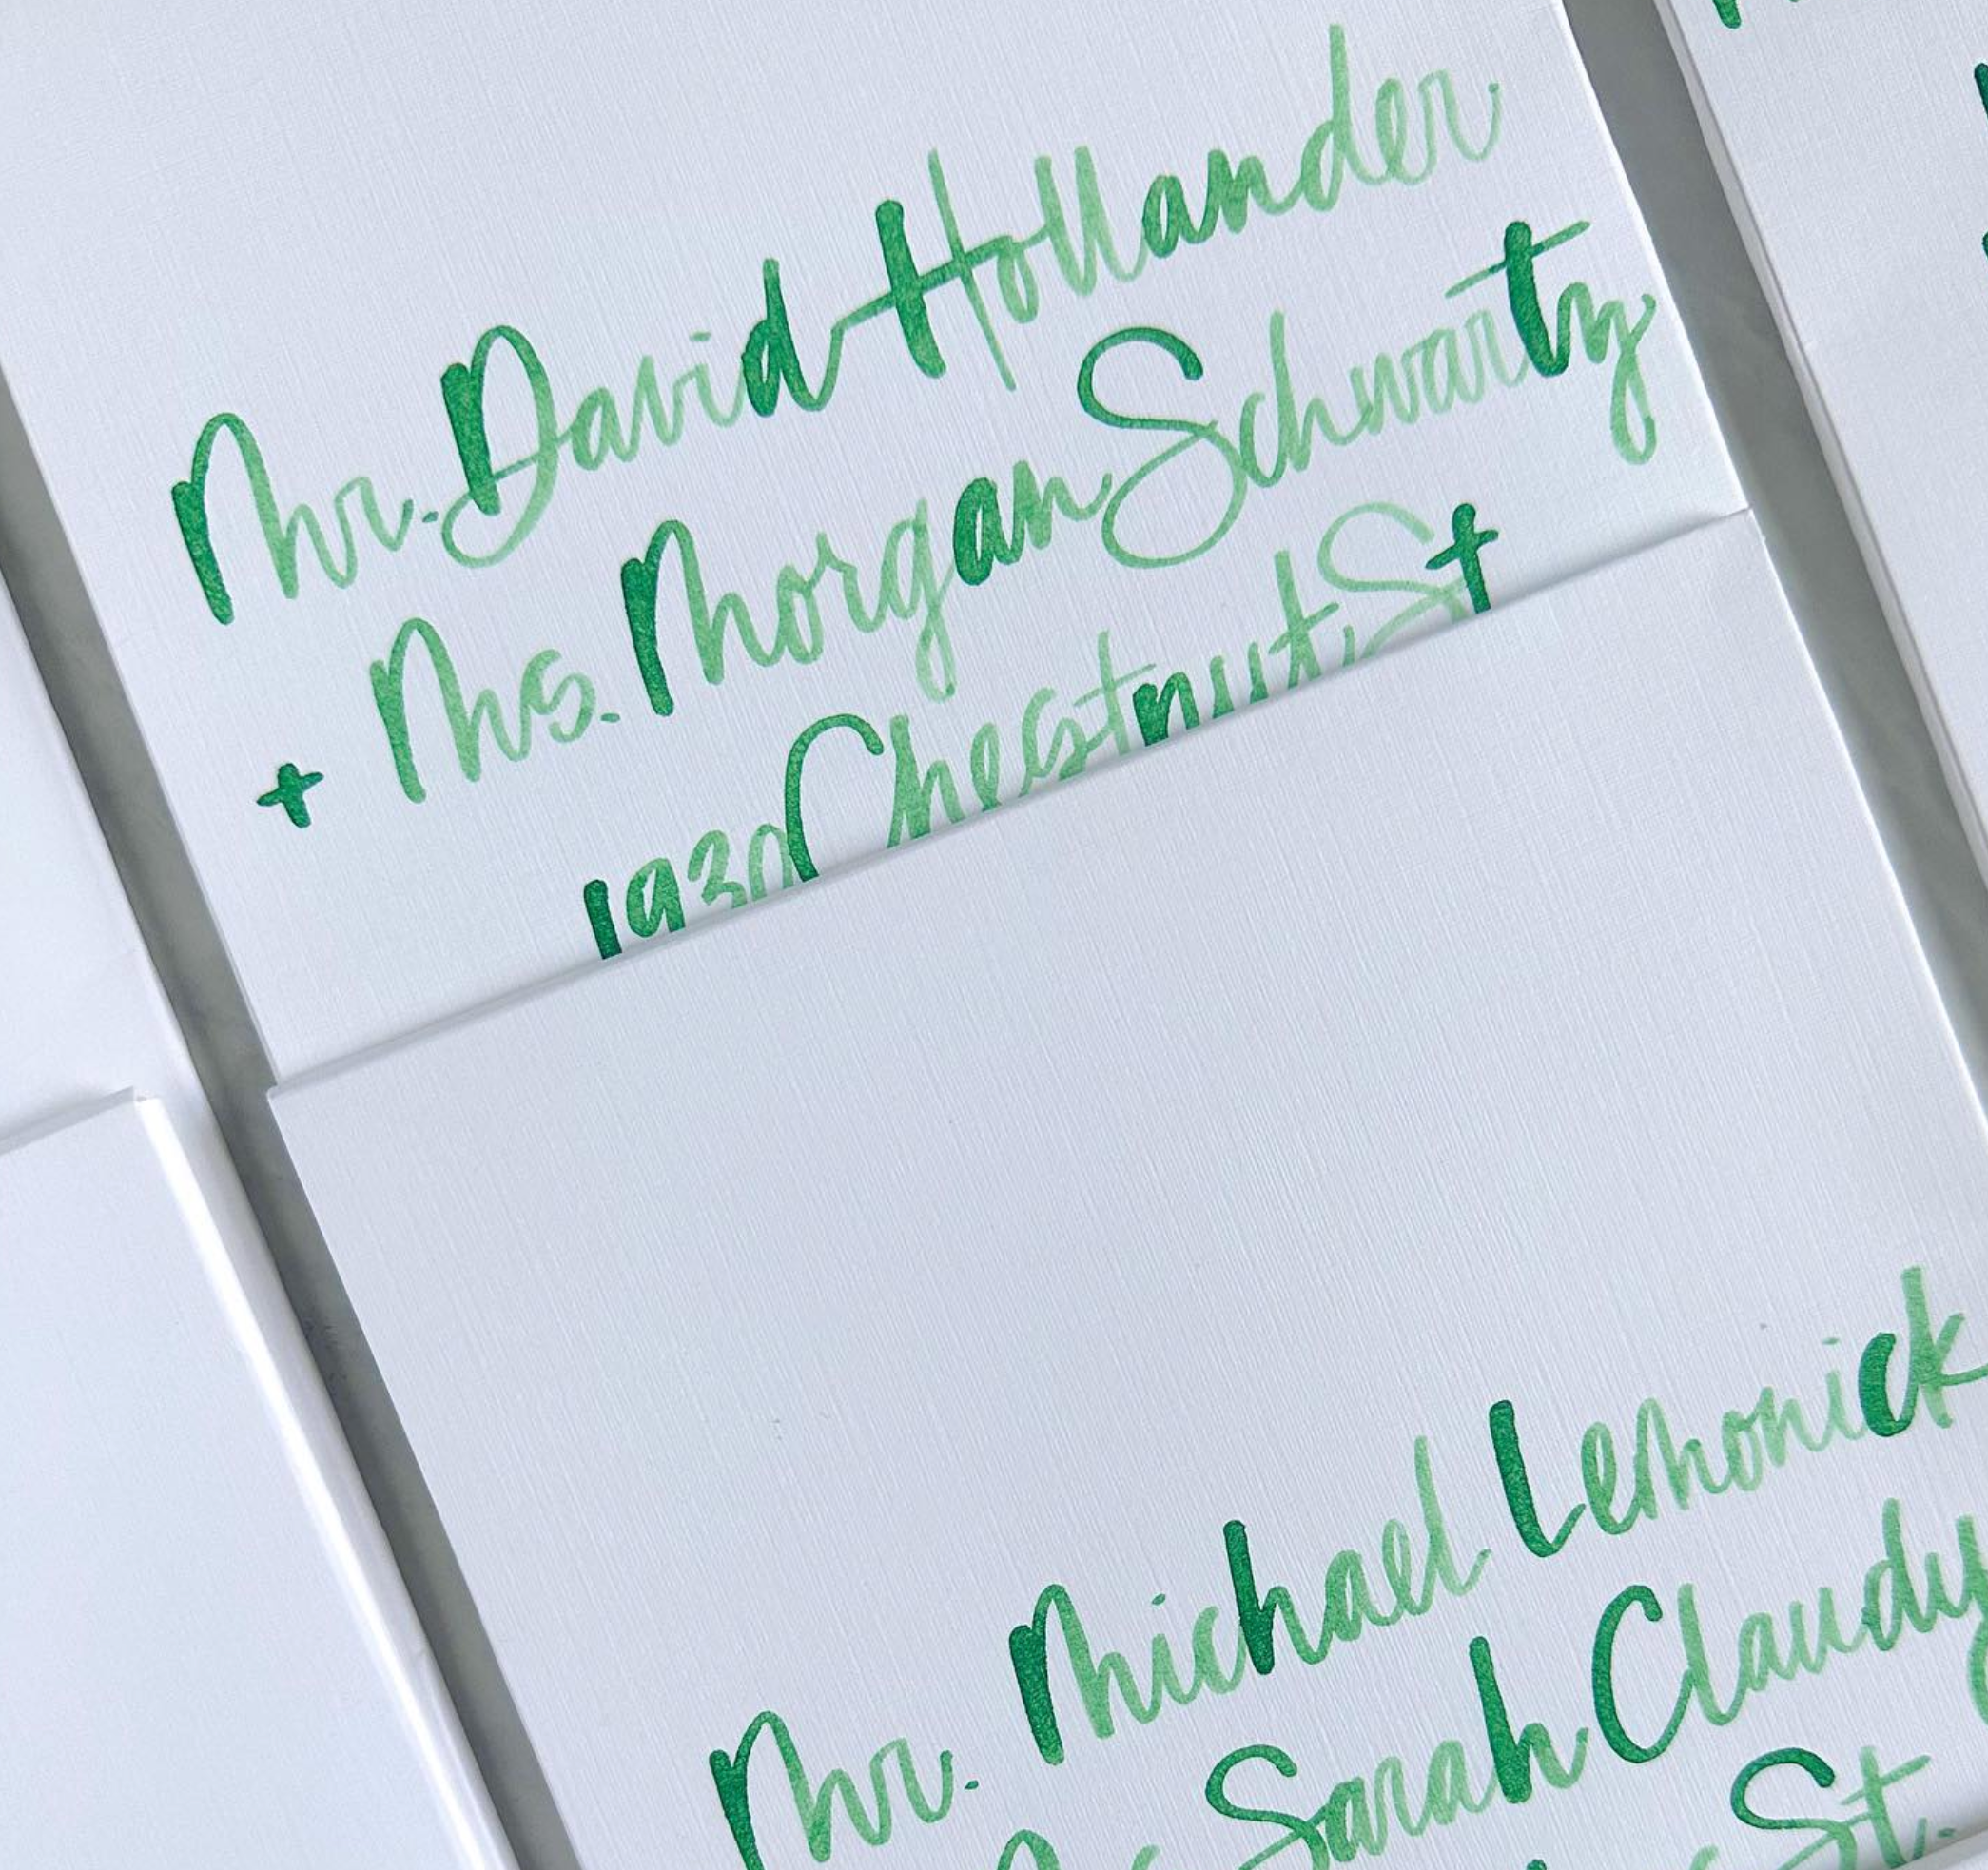 Mr. David Hollander
+ Ms. Morgan Schwartz
1930 Chestnut St
Mr. Michael Lemonick
Sarah Claudy
St.